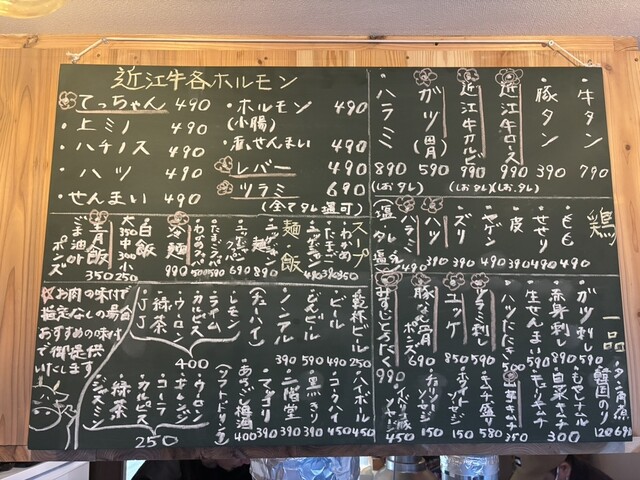 近江牛各ホルモン
てっちゃん 490
・上ミノ 490
・ハチノス 490
・ハツ 490
・せんまい 490
・ホルモン(小腸) 490
490
レバー 490
ツラミ 690
(全てタレ塩可)
・牛タン 790
・豚タン 390
近江牛ロース 990
近江牛カルビ 990
ガツ(胃) 590
・ハラミ 890
鶏
・もも 490
・せせり 490
・皮 390
・ヤゲン 490
・ズリ 390
ハツ 390
ハラミ 490
スープ
・わかめ 350
麺・飯
冷麺 990
白飯
大350 中300 小250
青月飯 350
ごま油 or ポンズ
一品
ガツ刺し 590
赤身刺し 890
生せんまい 590
ハツたたき 500
ツラミ刺し 590
ユッケ 850
690
・タン角煮 690
韓国のり 120
もやしナムル
白菜キムチ
キュウリキムチ
300
山芋キムチ 350
キムチ盛り 580
ソーセージ 150
ソーセージ 150
ソーセージ 450
乾杯ビール 250
ビール 490
びんビール 590
ノンアル 390
(チューハイ)
レモン
ライム
カルピス
ウーロン
緑茶
JJ
400
ハイボール 450
コークハイ 450
黒きり 390
二階堂 390
390
あらごし梅酒 400
(ソフトドリンク)
ウーロン
オレンジ
コーラ
カルピス
緑茶
ジャスミン
250
お肉の味付で
指定なしの場合
おすすめの味付
で御提供
いたします